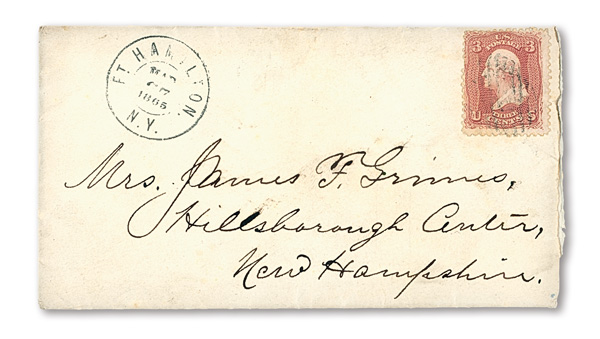 FT. HAMILTON.
MAR
1865
N.Y.
3 U.S. 3
U THREE CENTS S
Mrs. James F. Grimes,
Hillsborough Center,
New Hampshire.